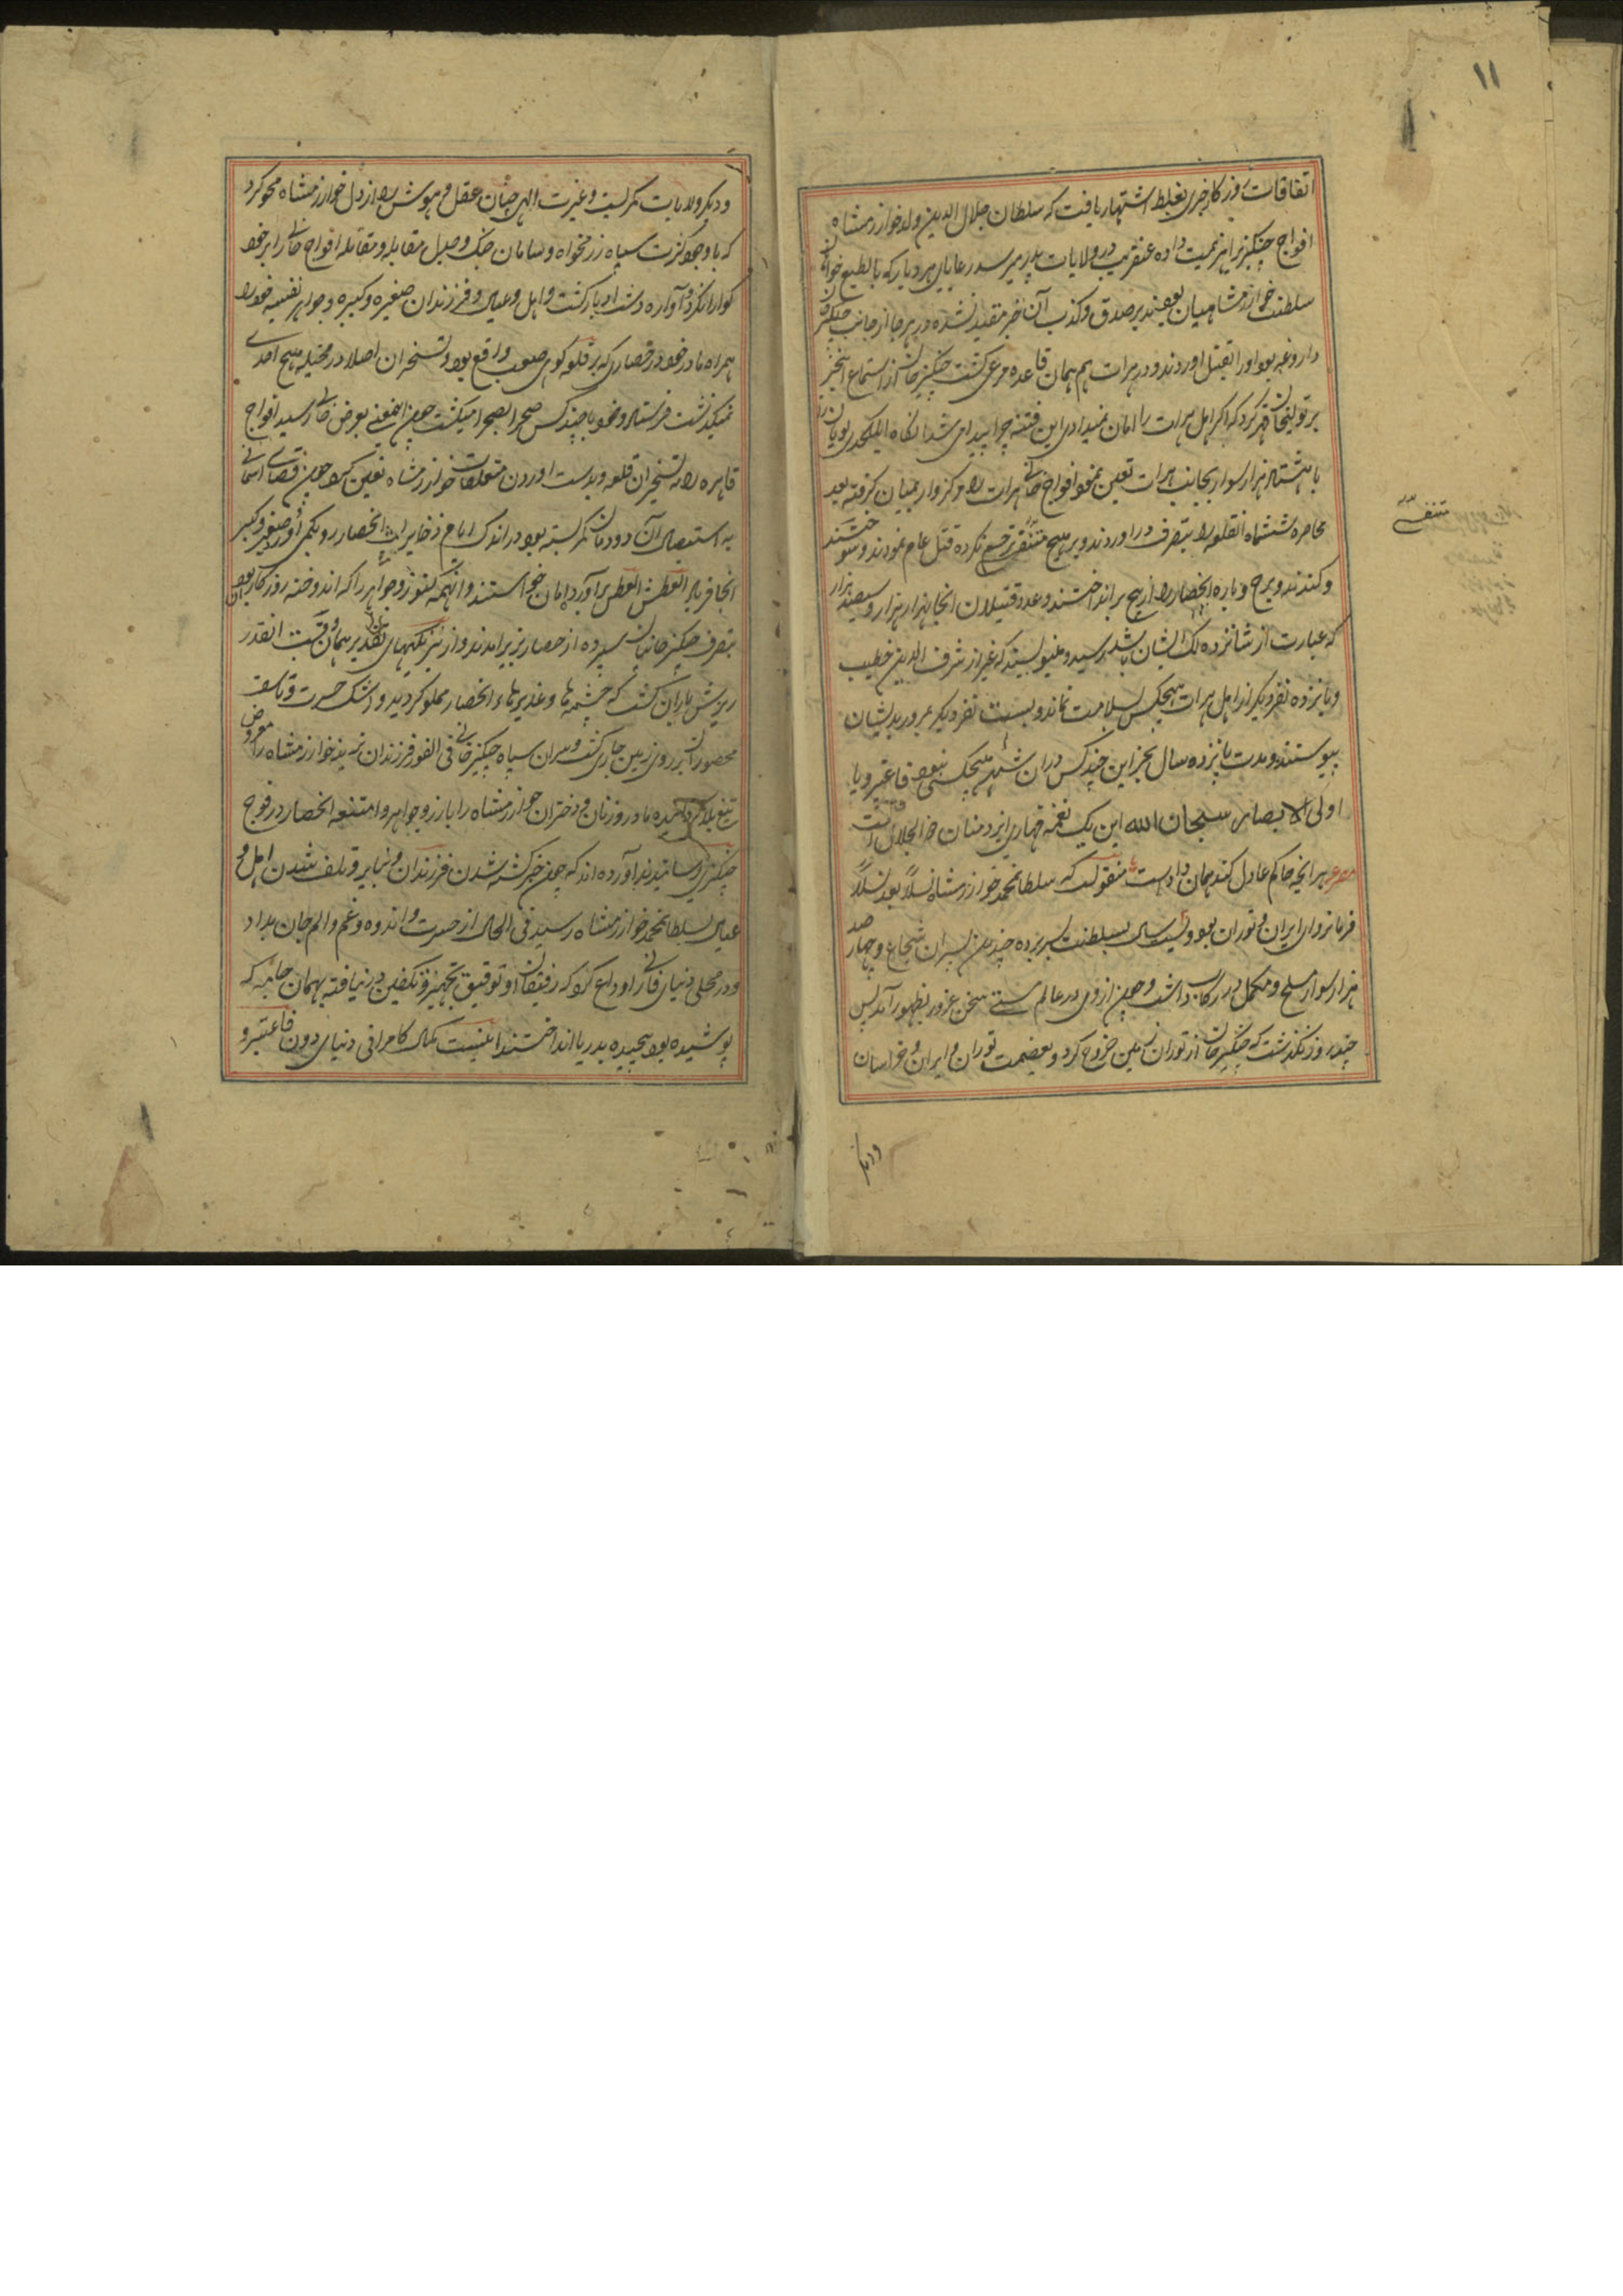 ۱۱
اتفاقات روزکار خبری بغلط اشتهار یافت که سلطان جلال الدین ولد خوارزمشاه
افواج چنکیز را هزیمت داده عنقریب در ولایات پدر میرسد رعایای هر دیار که بالطبع خواهان
سلطنت خوارزمشاهیان بودند بر صدق و کذب آن خبر مقید نشده در هر جا از جانب چنکیز خان
داروغه بود اورا بقتل اوردند و در هرات هم همان قاعده مرعی کشت چنکیز خان از استماع اینخبر
بر تولیخان قهر کرد که اکر اهل هرات را امان نمیدادی این فتنه چرا پیدا می شد انکاه ایلکجدی نویان را
با هشتاد هزار سوار بجانب هرات تعین نمود افواج خانی هرات را مرکزوار بمیان کرفته بعد
محاصره ششماه انقلعه را بتصرف در اوردند و بر هیچ متنفسی رحم نکرده قتل عام نمودند و سوختند
متنفسی
و کندند و برج و باره انحصار را از بیخ بر انداختند و عدد قتیلان انجا بهزار هزار و ششصد هزار
که عبارت از شانزده لک انسان باشد رسید و مینویسند که غیر از شرف الدین خطیب
و پانزده نفر دیکر از اهل هرات هیچکس بسلامت نماند و بیست نفر دیکر بمرور بدیشان
پیوستند و مدت پانزده سال بجز این چند کس دران شهر هیچکسی نبود فاعتبرو یا
اولی الابصار سبحان الله این یک نغمه قهاری ایزد منان ذو الجلال است
مصرع هر انچه حاکم عادل کند همان داد است منقولست که سلطانمحمد خوارزمشاه نسلاً بعد نسلاً
فرمانروای ایران و توران بود و بیست سال بسلطنت بسر برده چندین پسران شجاع و چهار صد
هزار سوار مسلح و مکمل در رکاب داشت و چون ازوی در عالم مستی سخن غرور بظهور آمد پس
چند روز نکذشت که چنکیز خان از توران زمین خروج کرد و بعزیمت توران و ایران و خراسان
ودیکر
ودیکر ولایات کمر بست و غیرت الهی چنان عقل و هوش را از دل خوارزمشاه محو کرد
که باوجود کثرت سپاه زرمخواه و سامان جنک و جدل مقابله و مقاتله افواج خانی را بر خود
کوارا نکرده آواره دشت ادبار کشت و اهل و عیال و فرزندان صغیره و کبیره و جواهر نفیسه خود را
همراه مادر خود در حصاری که بر قلعه کوهی صعب واقع بود و تسخیر ان اصلا در مخیله هیچ احدی
نمیکذشت فرستاد و خود با چند کس صحرا بصحرا میکشت چون اینمعنی بعرض خانی رسید افواج
قاهره را به تسخیر ان قلعه و بدست اوردن متعلقان خوارزمشاه تعین کرد چون قضای آسمانی
به استیصال آن دودمان کمر بسته بود در اندک ایام ذخایر اب انحصار رو بکمی آورد صغیر و کبیر
انجا فریاد العطش العطش برآورده امان خواستند و انهمه کنوز و جواهر را که اندوخته روزکار بود
بتصرف چنکیز خانیان سپرده از حصار بزیر امدند و از نیرنکیهای تقدیر همان وقت انقدر
ریزش باران کشت که چشمه ها و غدیرهاء انحصار مملو کردید و اشک حسرت و تاسف
محصوران بر روی زمین جاری کشت و سران سپاه چنکیز خانی فی الفور فرزندان نرینه خوارزمشاه را معروض
تیغ هلاک کردانیده مادر و زنان و دختران خوارزمشاه را با زر و جواهر و امتعه انحصار در فوج
چنکیزی رسانیدند آورده اند که چون خبر کشته شدن فرزندان و نبایر و تلف شدن اهل و
عیال بسلطانمحمد خوارزمشاه رسید فی الحال از حسرت و اندوه و غم و الم جان بداد
و در محلی دنیای فانی را وداع کرد که رفیقان او توفیق تجهیز و تکفین وی نیافته بهمان جامه که
پوشیده بود پیچیده بدریا انداختند اینست مال کامرانی دنیای دون فاعتبرو